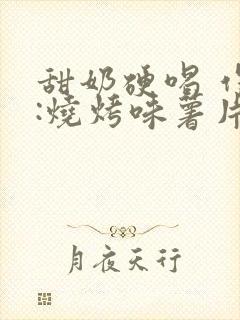 甜奶硬唱
:燒烤味薯片
月夜天行